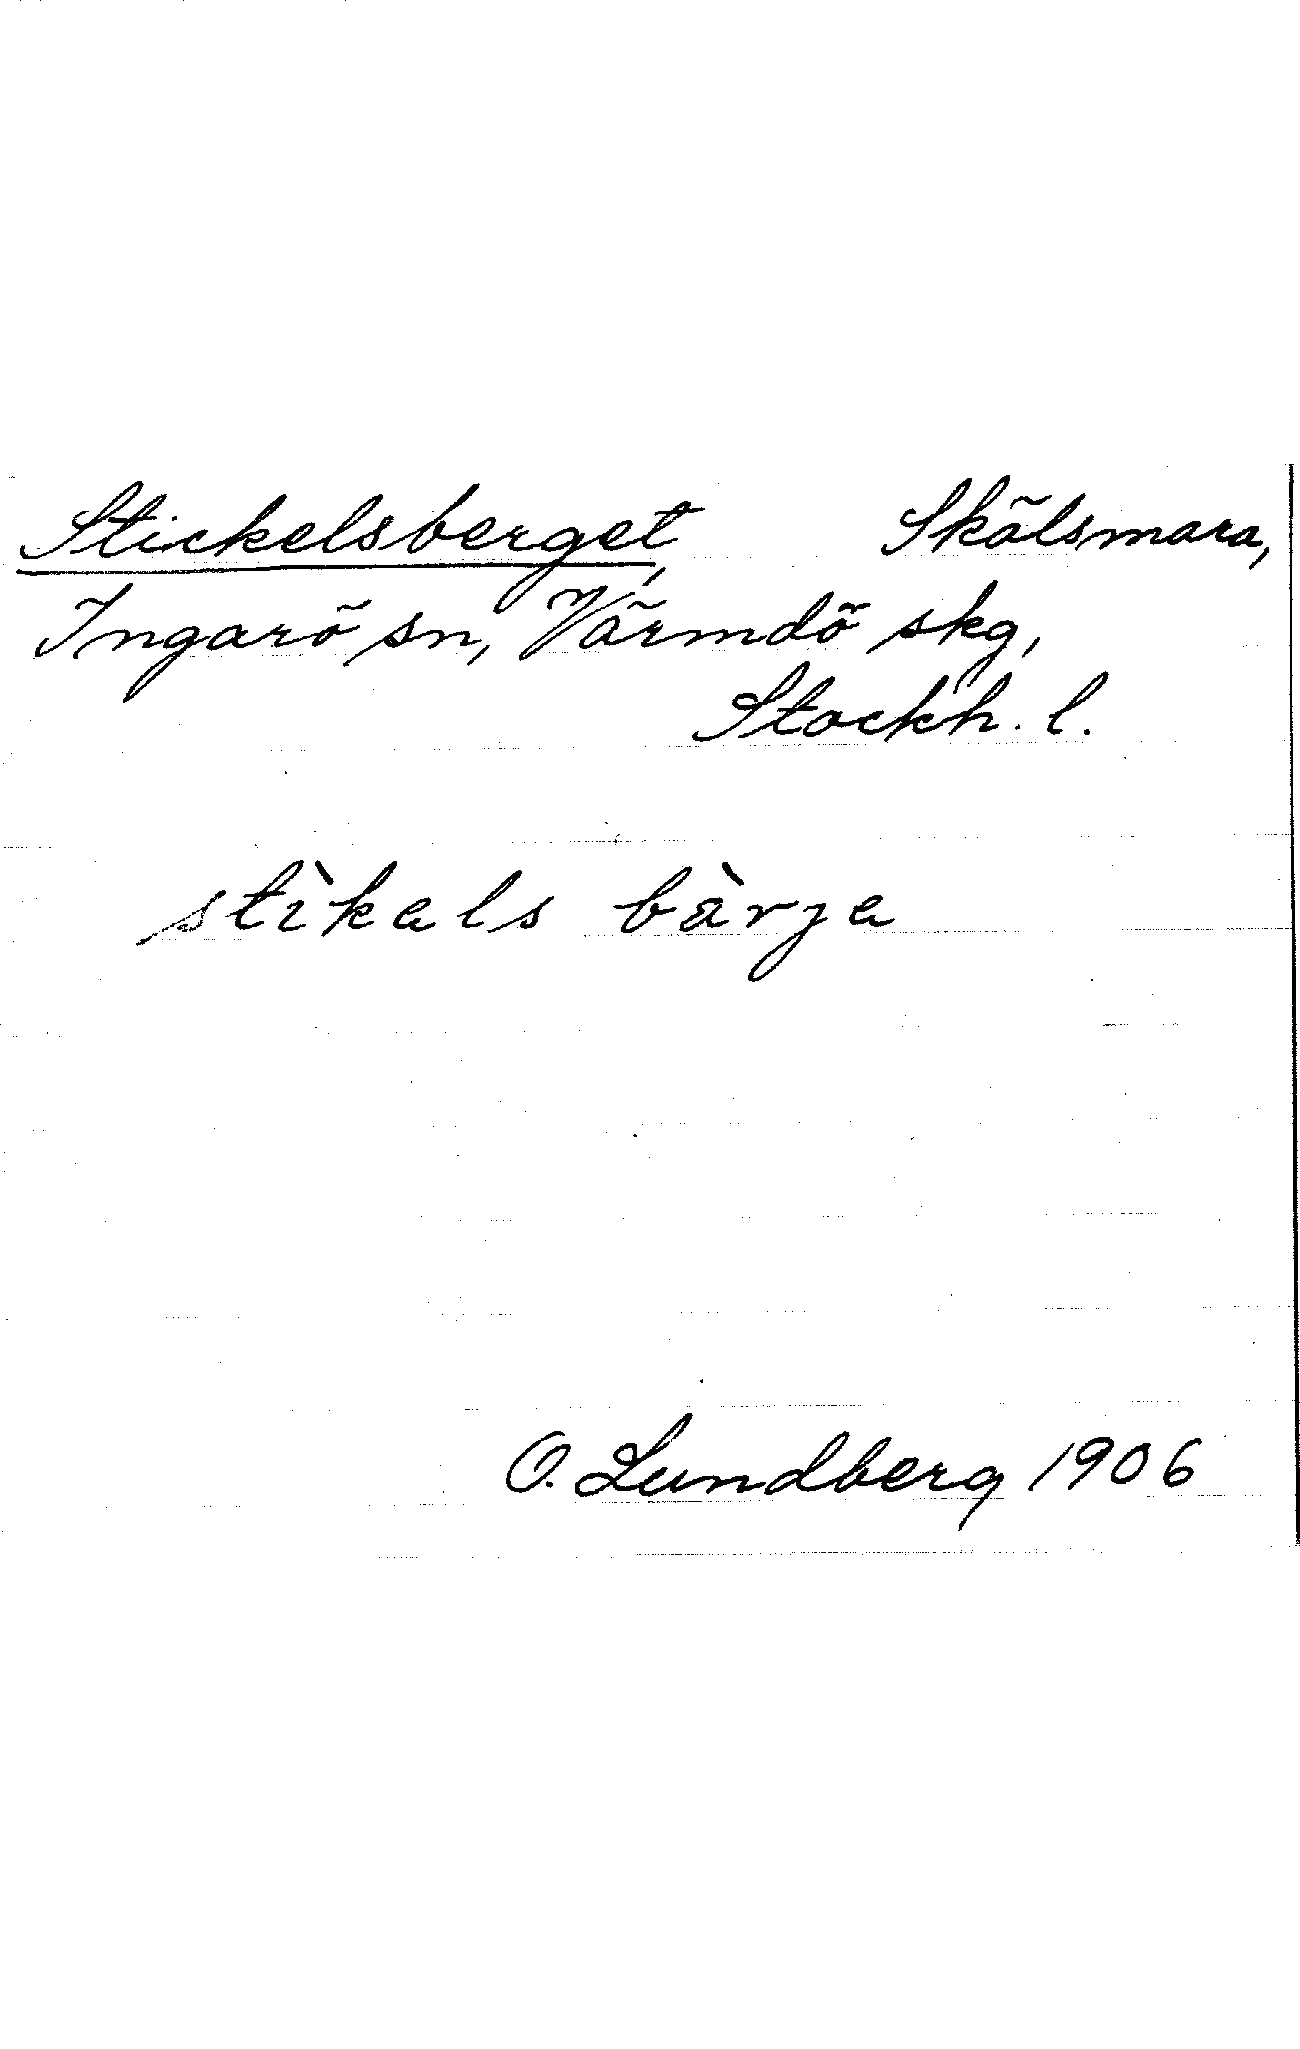 Stickelsberget, Skälsmara,
Ingarö sn, Värmdö skg,
Stockh. l.
stìkals bàrja
O. Lundberg 1906